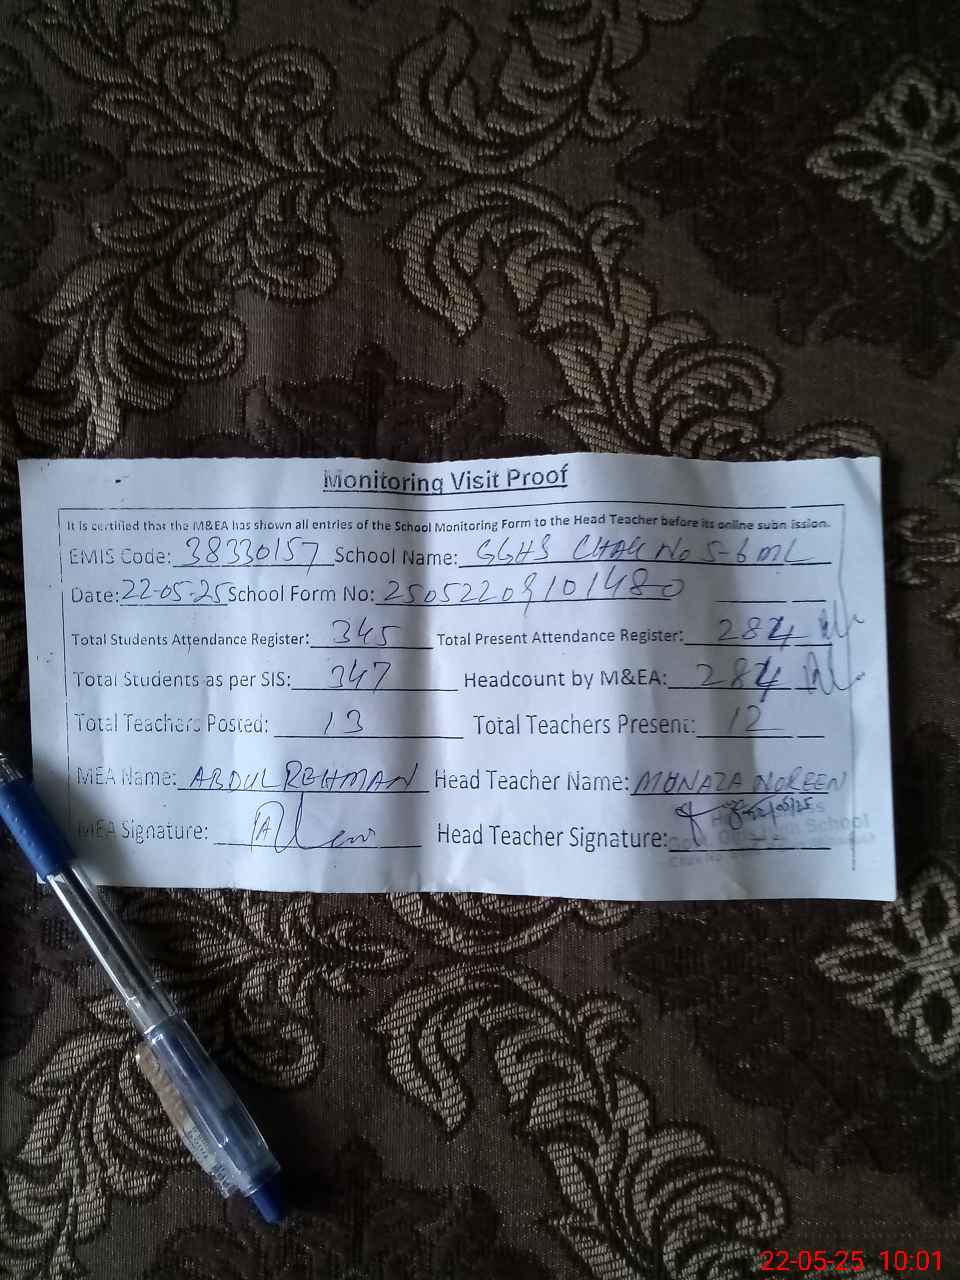 Monitoring Visit Proof
It is certified that the M&EA has shown all entries of the School Monitoring Form to the Head Teacher before its online submission.
EMIS Code: 38330157 School Name: GGHS CHAK No 5-6 ML
Date: 22-05-25 School Form No: 25052209101480
Total Students Attendance Register: 345 Total Present Attendance Register: 284
Total Students as per SIS: 347 Headcount by M&EA: 284
Total Teachers Posted: 13 Total Teachers Present: 12
MEA Name: ABDUL REHMAN Head Teacher Name: MONAZA NOREEN
MEA Signature: Head Teacher Signature:
School
22-05-25 10:01